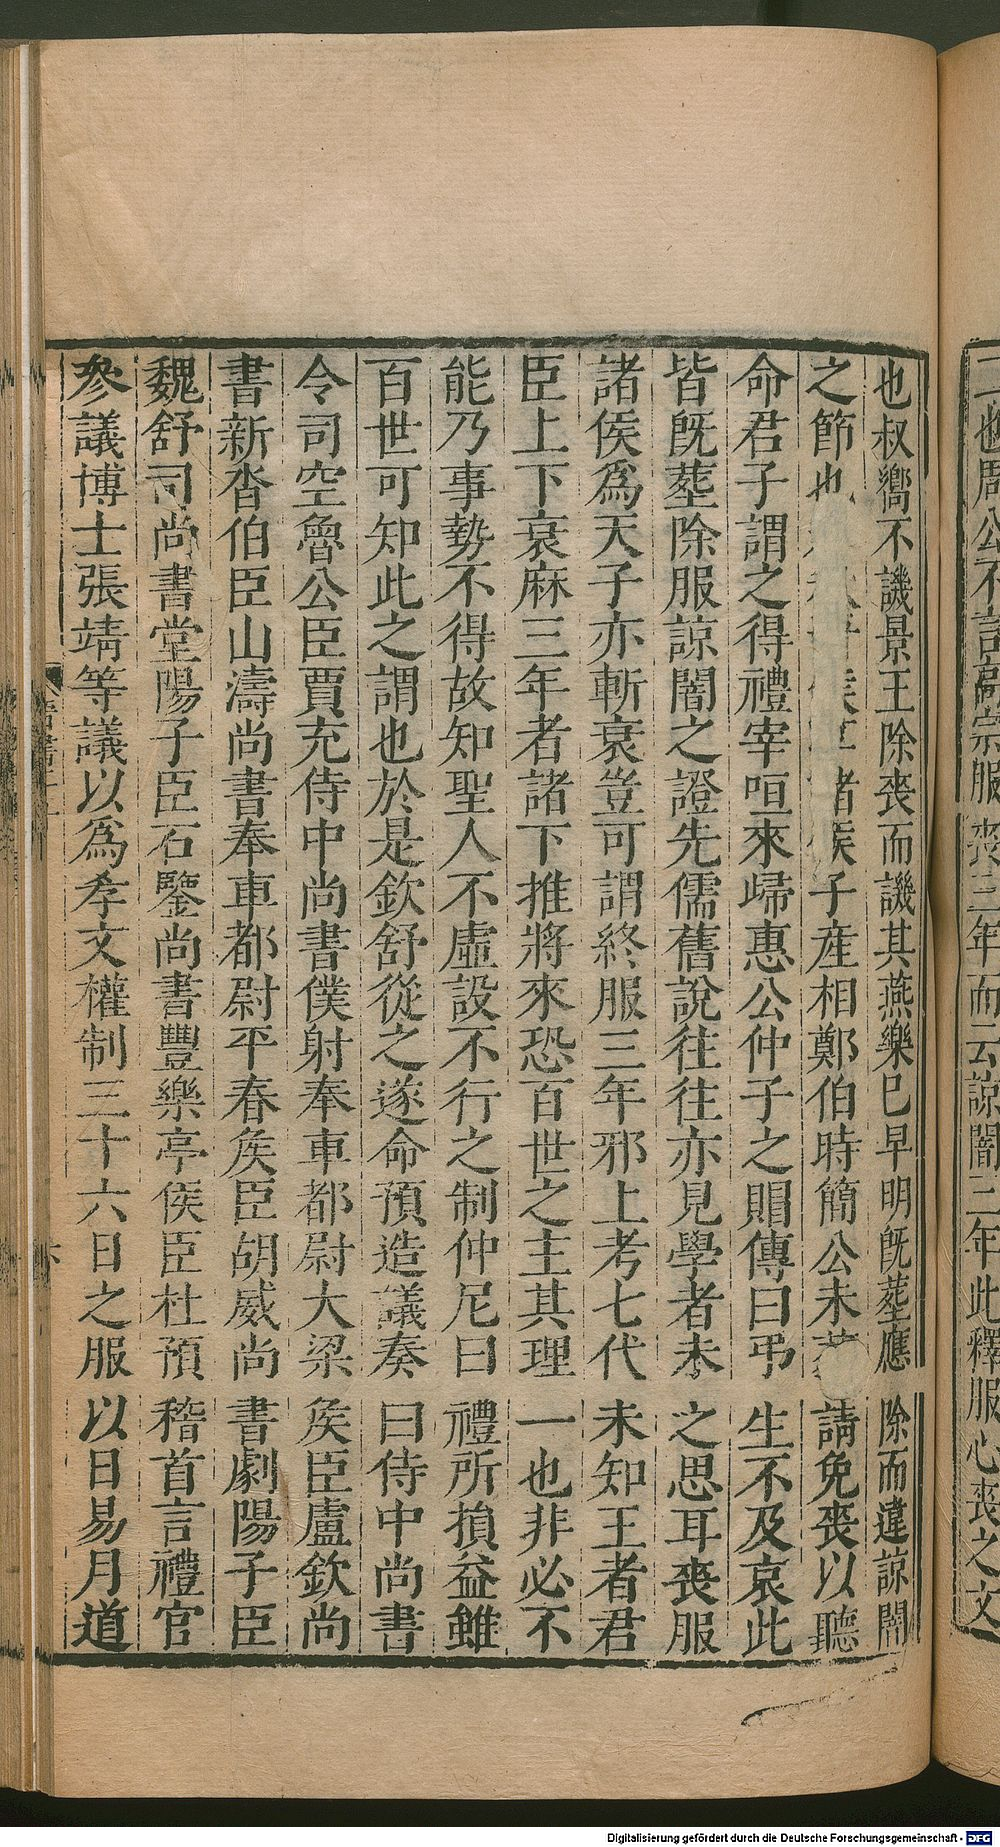 二也周公不言高宗服喪三年而云諒闇三年此釋服心喪之文
也叔嚮不譏景王除喪而譏其燕樂已早明旣葬應除而違諒闇
之節也 諸侯子產相鄭伯時簡公未葬請免喪以聽
命君子謂之得禮宰咺來歸惠公仲子之賵傳曰弔生不及哀此
皆旣葬除服諒闇之證先儒舊說往往亦見學者未之思耳喪服
諸侯爲天子亦斬衰豈可謂終服三年邪上考七代未知王者君
臣上下衰麻三年者諸下推將來恐百世之主其理一也非必不
能乃事勢不得故知聖人不虛設不行之制仲尼曰禮所損益雖
百世可知此之謂也於是欽舒從之遂命預造議奏曰侍中尚書
令司空魯公臣賈充侍中尚書僕射奉車都尉大梁矦臣盧欽尚
書新沓伯臣山濤尚書奉車都尉平春矦臣胡威尚書劇陽子臣
魏舒司尚書堂陽子臣石鑒尚書豐樂亭侯臣杜預稽首言禮官
參議博士張靖等議以爲孝文權制三十六日之服以日易月道
Digitalisierung gefördert durch die Deutsche Forschungsgemeinschaft - DFG